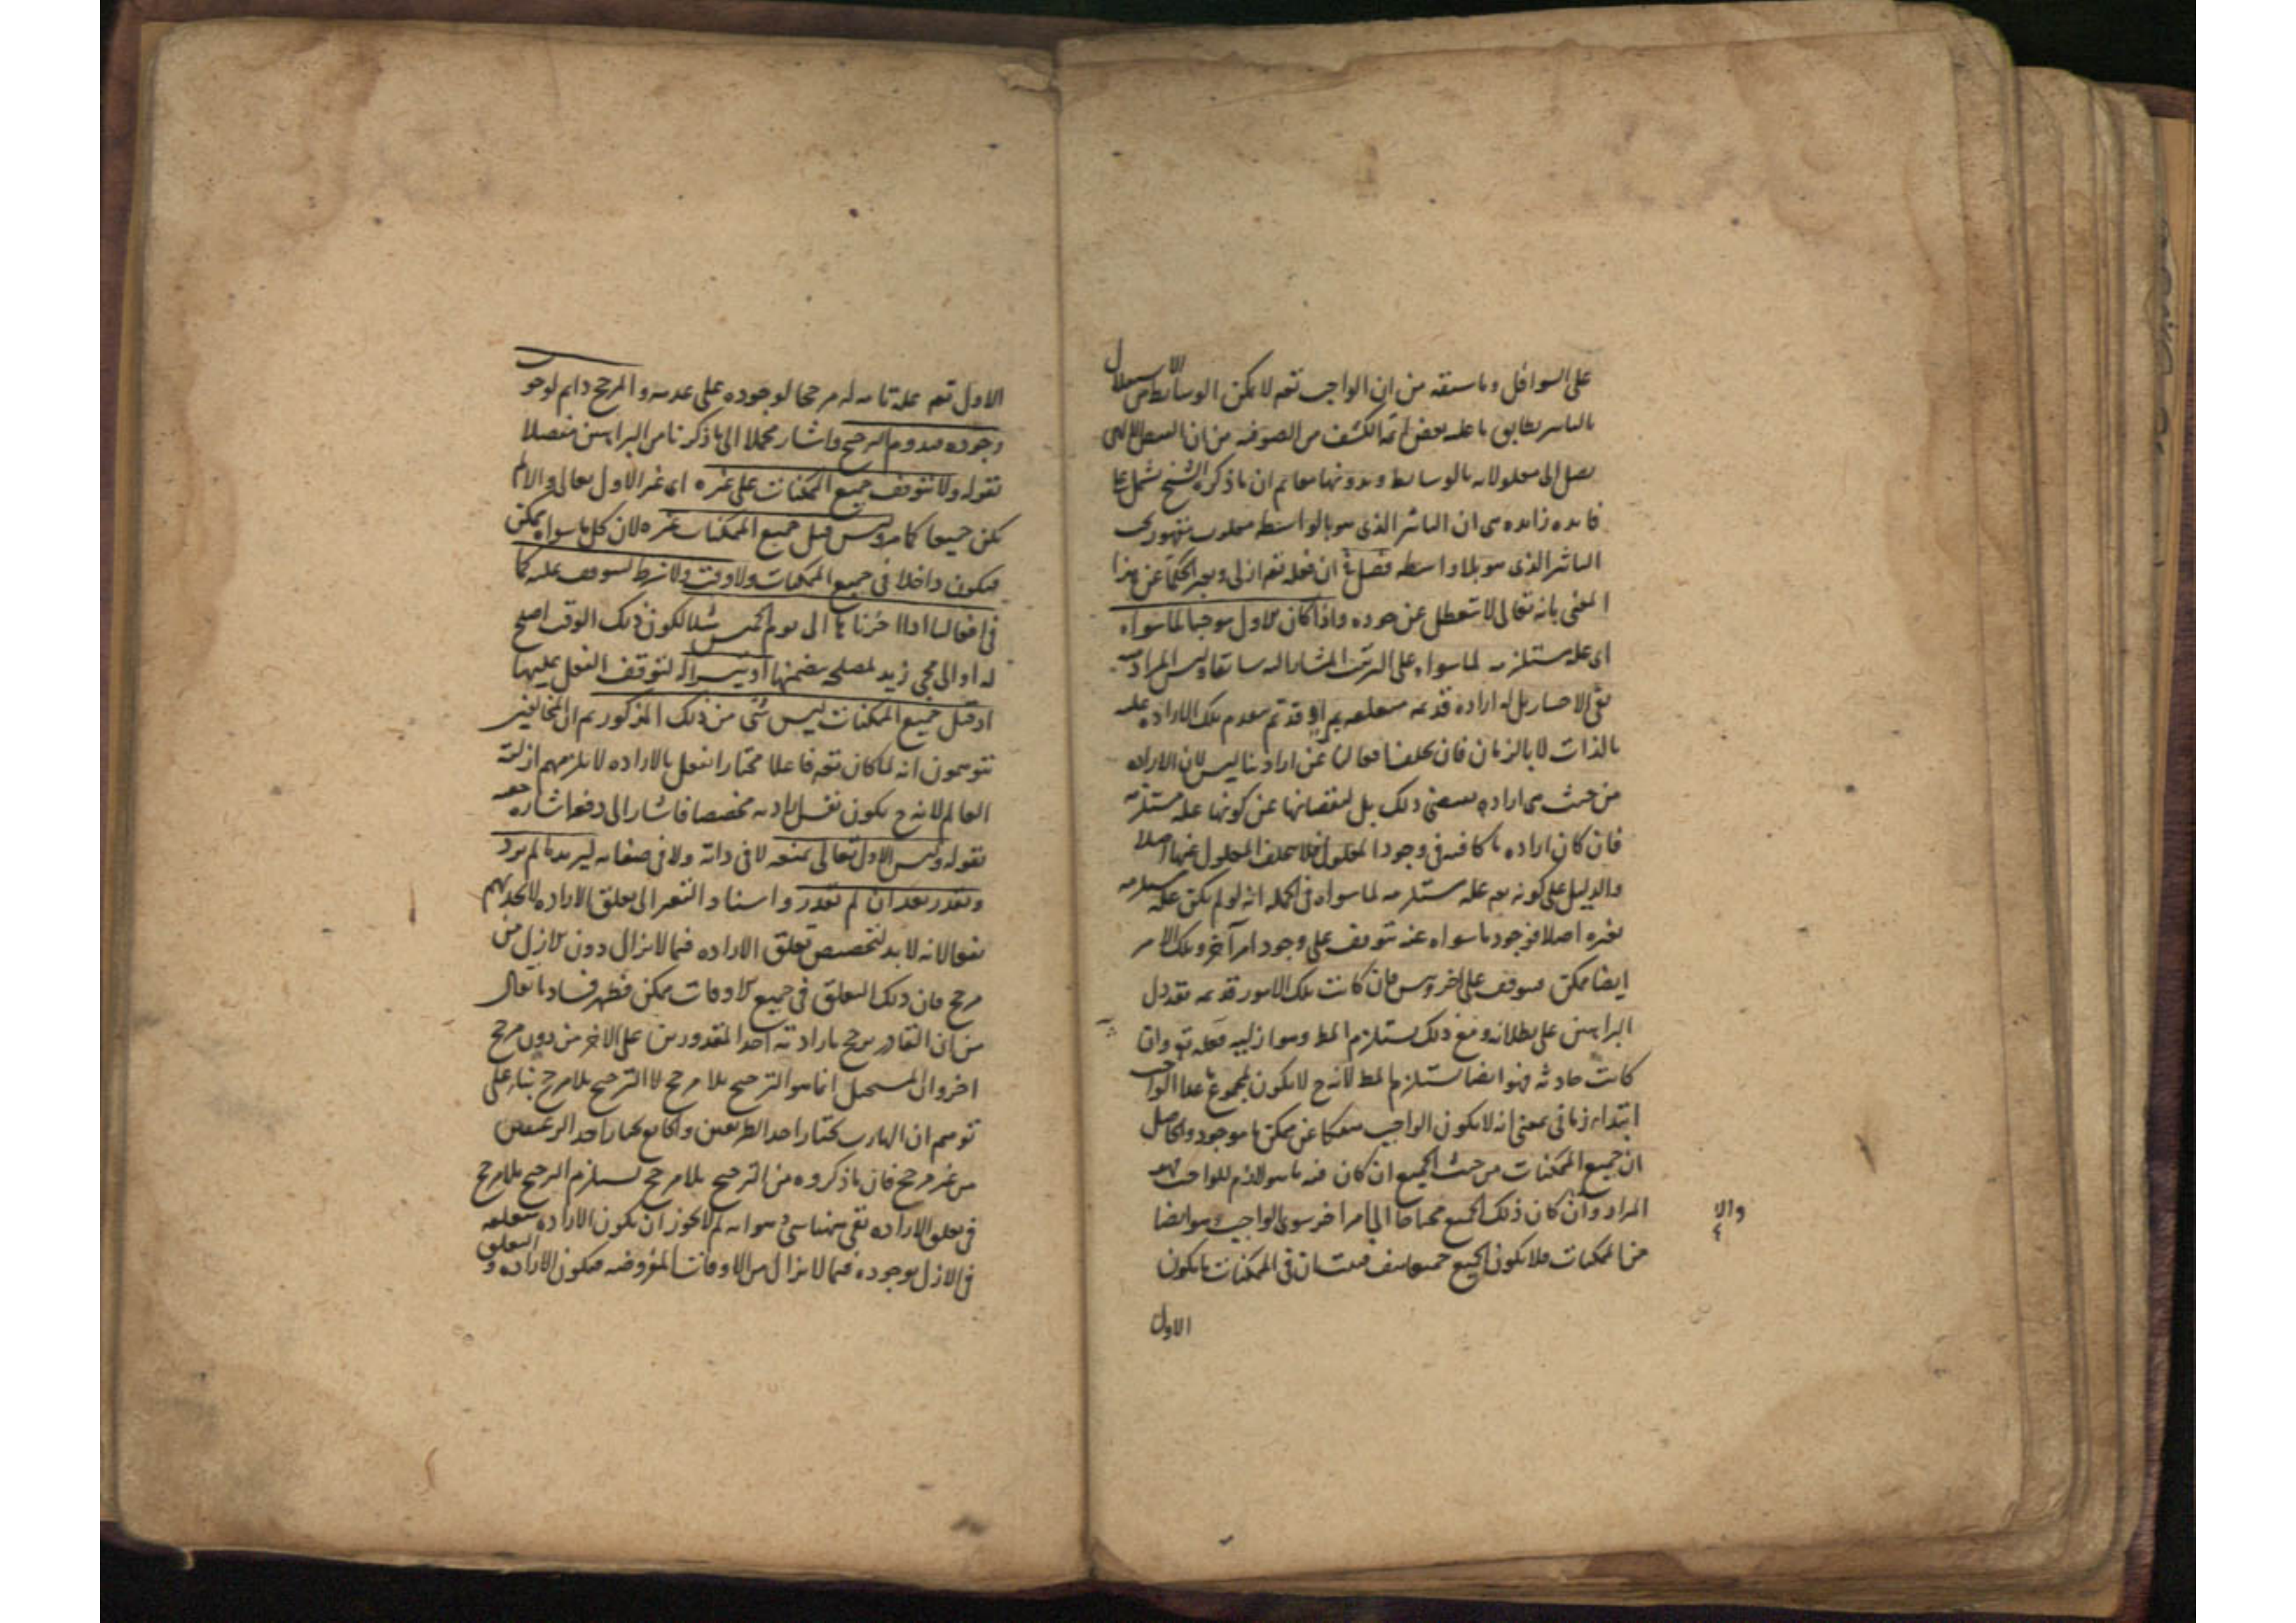 على السوافل وما سبقه من ان الواجب تعم لا يمكن الوسائط من الاستقلال
بالتاثير يطابق ما عليه بعض ائمة الكشف من الصوفيه من ان الفيض الالهى
يصل الى معلولاته بالوسائط وبدونها معا ثم ان ما ذكره الشيخ يشمل على
فايده زايده هى ان التاثير الذى هو بالواسطه مغلوب مقهور تحت
التاثير الذى هو بلا واسطه فصل فى ان فعله تعم ازلى ويعبر الحكما عن هذا
المعنى بانه تعالى لا يتعطل عن جوده واذا كان الاول موجبا لما سواه
اى عله مستلزمه لما سواه على الترتيب المشار اليه سابقا وليس المراد به
نفى الاختيار بل له اراده قديمه متعلقه بمراد قديم تقدم تلك الاراده عليه
بالذات لا بالزمان فان تخلف افعالنا عن ارادتنا ليس لان الاراده
من حيث هى اراده يقتضى ذلك بل لنقصانها عن كونها عله مستلزمه
فان كان اراده ما كافيه فى وجود المعلول فلا يتخلف المعلول عنها اصلا
والدليل على كونه تعم عله مستلزمه لما سواه فى الجمله انه لو لم يكن عله مستلزمه
لغيره اصلا فوجود ما سواه عنه يتوقف على وجود امر آخر وتلك الامر
ايضا ممكن فيتوقف على اخر وهكذا فان كانت تلك الامور قديمه فقد دل
البراهين على بطلانه ومع ذلك يستلزم المط وهو ازليه فعله تع وان
كانت حادثه فهو ايضا يستلزم المط لانه ح لا يكون لمجموع ما عدا الواجب
ابتداء زمانى بمعنى انه لا يكون الواجب منفكا عن ممكن ما موجود والحاصل
ان جميع الممكنات من حيث الجميع ان كان فيه ما هو لازم للواجب فهو
المراد وان كان ذلك الجميع محتاجا الى امر اخر سوى الواجب وهو ايضا
من الممكنات فلا يكون الجميع جميعا هف فثبت ان فى الممكنات ما يكون
والا
الاول
الاول تعم عله تامه له مرجحا لوجوده على عدمه والمرجح دايم لوجو
وجوده فيدوم الترجيح واشار مجملا الى ما ذكرنا من البراهين مفصلا
بقوله ولا يتوقف جميع الممكنات على غيره اى غير الاول تعالى والا لم
يكن جميعا كما مر وليس قبل جميع الممكنات غيره لان كل ما سواه ممكن
فيكون داخلا فى جميع الممكنات ولا وقت ولا شرط ليتوقف عليه كما
فى افعالنا اذا اخرناها الى يوم الخميس مثلا لكون ذلك الوقت اصلح
له او الى مجى زيد لمصلحه يتضمنها او تيسر اله لتوقف الفعل عليها
اذ قبل جميع الممكنات ليس شى من ذلك المذكور ثم ان المخالفين
يتوهمون انه لما كان تعم فاعلا مختارا يفعل بالاراده لا يلزمهم ازليه
العالم لانه ح يكون نفس ارادته مخصصا فاشار الى دفع اشارة خفيه
بقوله وليس الاول تعالى بمتغير لا فى ذاته ولا فى صفاته ليريد ما لم يرد
ويقدر بعد ان لم يقدر واسناد التغير الى تعلق الاراده لا يجديهم
نفعا لانه لا بد لتخصيص تعلق الاراده فيما لا يزال دون الازل من
مرجح فان ذلك التعلق فى جميع الاوقات ممكن فظهر فساد ما يقال
من ان القادر يرجح بارادته احد المقدورين على الاخر من دون مرجح
اخر وان المستحيل انما هو الترجح بلا مرجح لا الترجيح بلا مرجح بناء على
توهم ان الهارب يختار احد الطريقين والجايع يختار احد الرغيفين
من غير مرجح فان ما ذكروه من الترجيح بلا مرجح يستلزم الترجح بلا مرجح
فى تعلق الاراده بقى ههنا شى وهو انه لم لا يجوز ان يكون الاراده متعلقه
فى الازل بوجوده فيما لا يزال من الاوقات المفروضه فيكون الاراده و التعلق